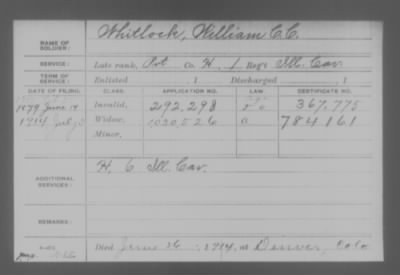 NAME OF SOLDIER: Whitlock, William C.C.
SERVICE: Late rank, Pvt Co. H, 1 Reg't Ill. Cav.
TERM OF SERVICE: Enlisted , 1 Discharged , 1
DATE OF FILING. CLASS. APPLICATION NO. LAW. CERTIFICATE NO.
1879 June 14 Invalid, 292,298 367,775
1914 July Widow, 1030,526 a 784161
Minor,
ADDITIONAL SERVICES: H. 6 Ill. Cav.
REMARKS:
Died June 16, 1914, at Denver, Colo